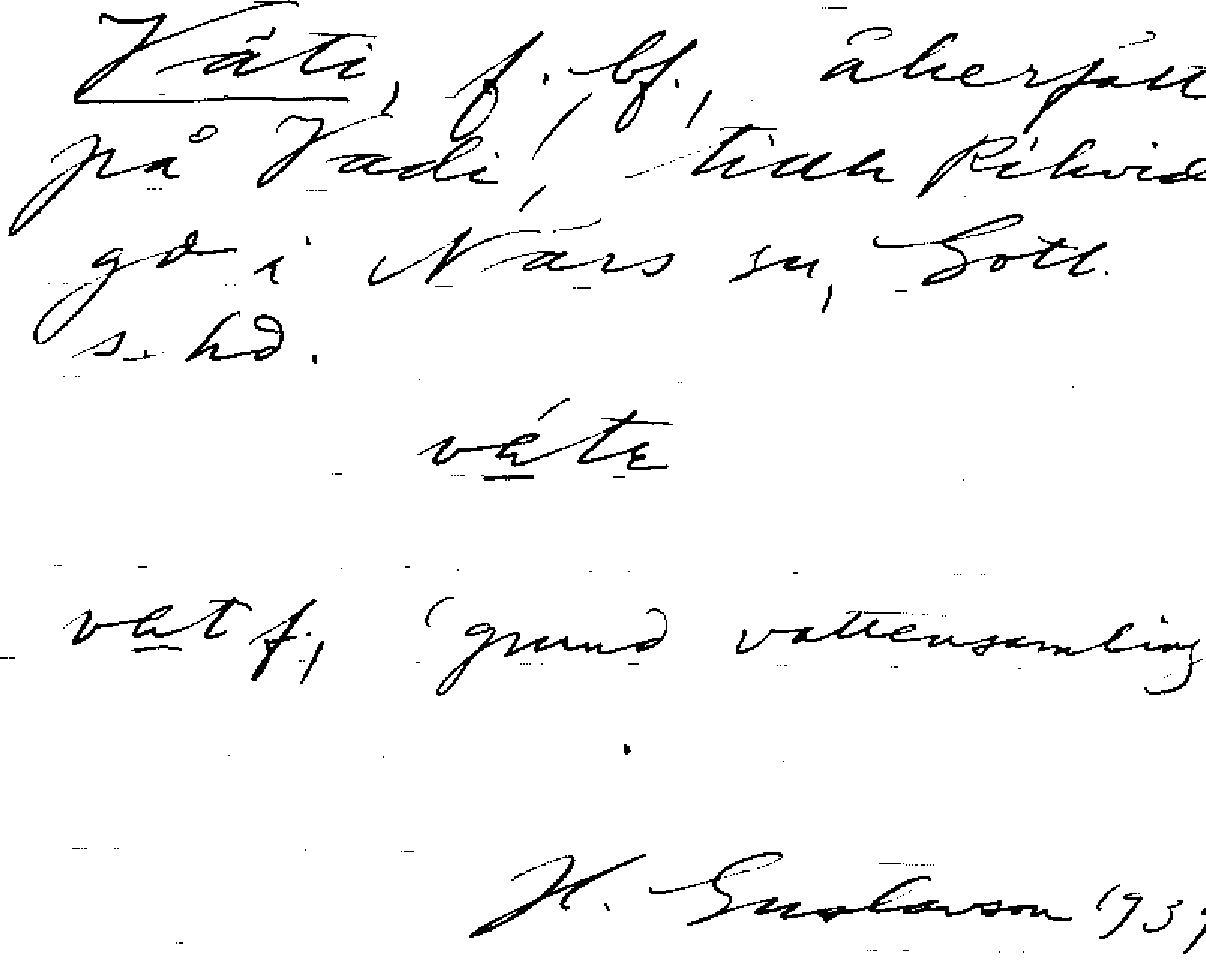 Väti, f., bf., åkerfält
på Vadi, tillh Rikvide
gd i Närs sn, Gotl.
s. hd.
väte
vät f., 'grund vattensamling
H. Gustavson 1939